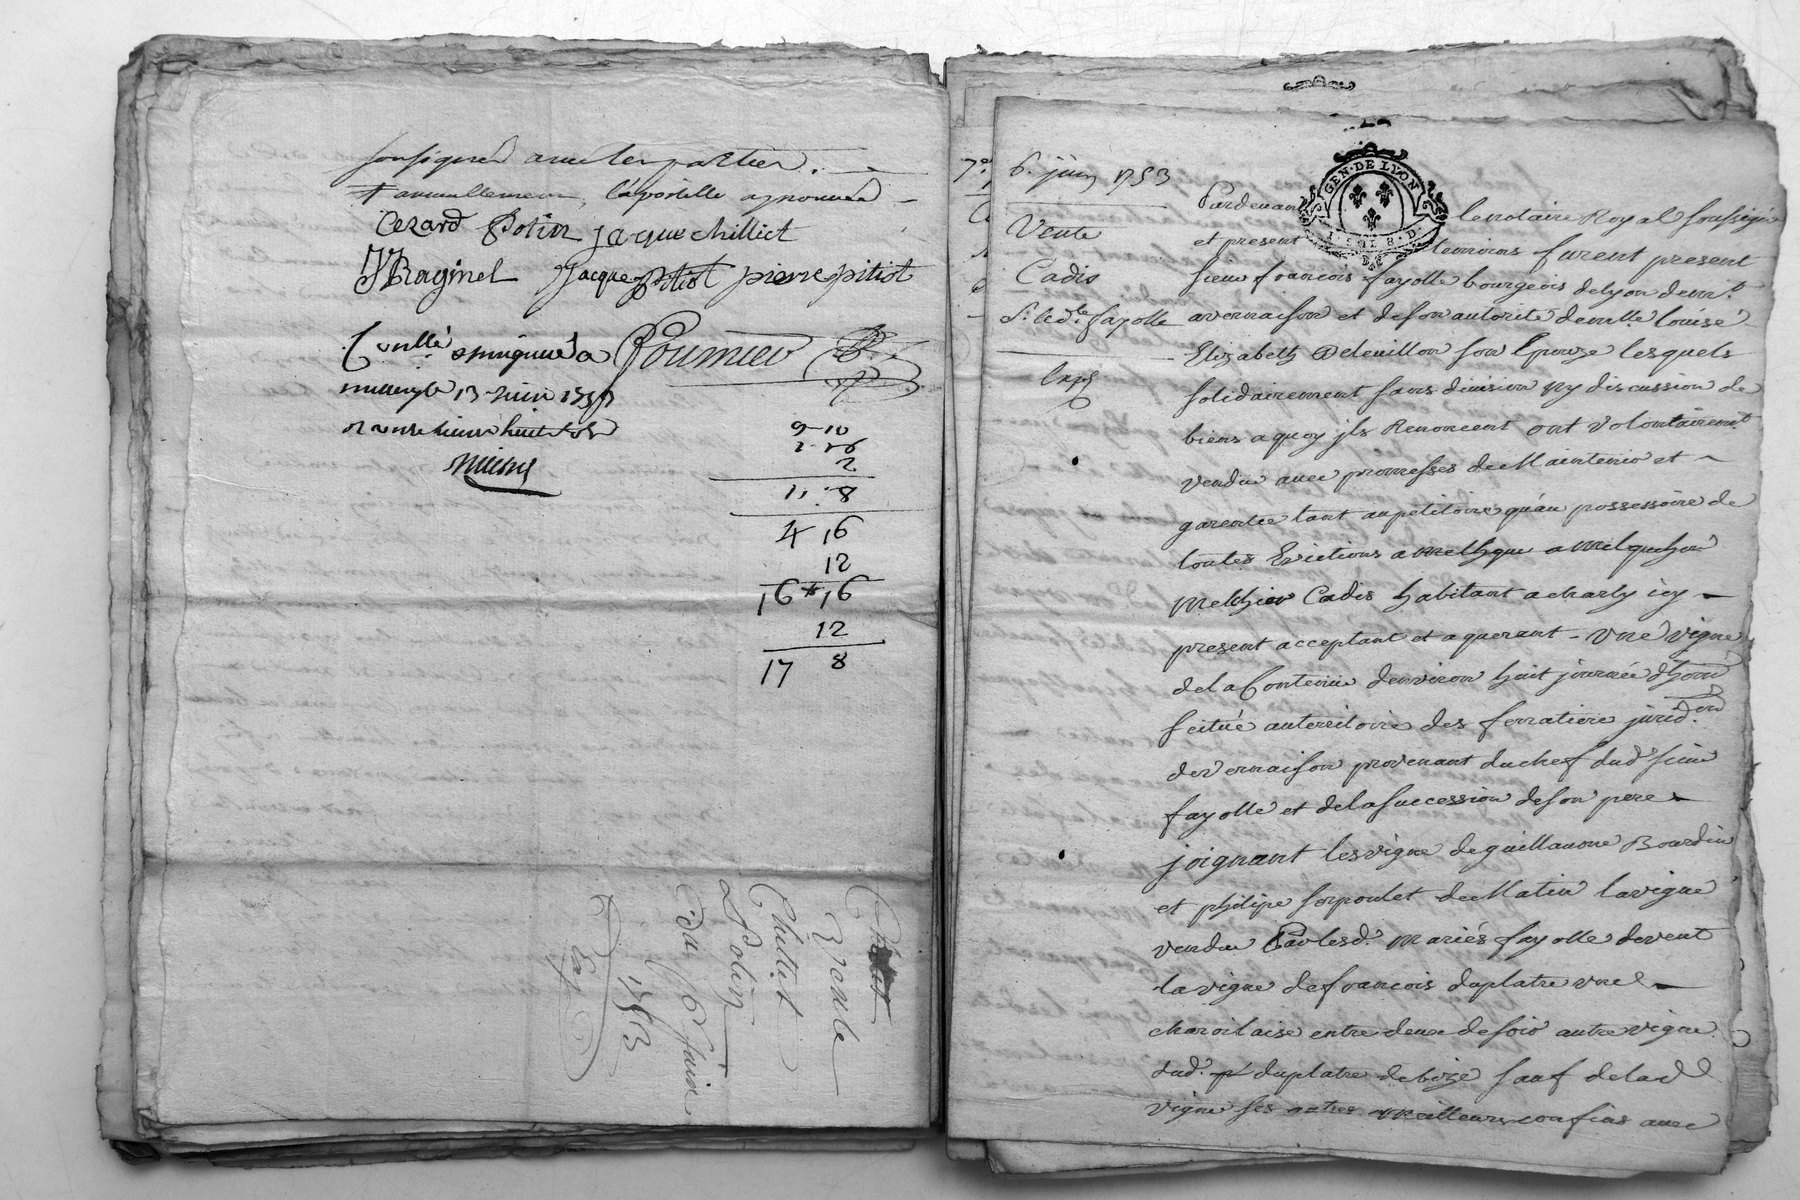 soussignés avec les parties.
annuellement, l'apostille approuvée
Cezard Potin jacque chilliet
Raginel Jacque pitiot pierre pitiot
Conllé a Fournier
13 juin 1753
9 10
2
11 8
4 16
12
16 16
12
17 8
Vente
Chilliet
Potin
Du 6 Juin
1753
6. juin 1753
Vente
Cadis
Sr. & dlle fayolle
GEN. DE LYON
Pardevant le notaire Royal soussigné
et present temoins furent present
sieur francois fayolle bourgeois de lyon demt.
a vernaison et de son autorité demlle. louise
Elizabeth son Epouze lesquels
solidairement sans division ny discussion de
biens a quoy ils Renoncent ont volontairemt
vendu avec promesses de Maintenir et
garentir tant au petitoire qu'au possessoire de
toutes Evictions
Melchior Cadis habitant a charly icy
present acceptant et aquerant - une vigne
de la Contenue d'environ huit journée d'hom
scitué au territoire des ferratiere jurid.on
de vernaison provenant du chef dud. sieur
fayolle et de la succession de son pere
joignant les vigne de guillaume Bourdin
et philipe sorpoulet de Matin la vigne
vendu Par lesd. mariés fayolle de vent
la vigne de francois duplatre une
charoilaise entre deux de soir autre vigne
dud. duplatre de bize sauf de lad
vigne ses autres meilleurs confins avec